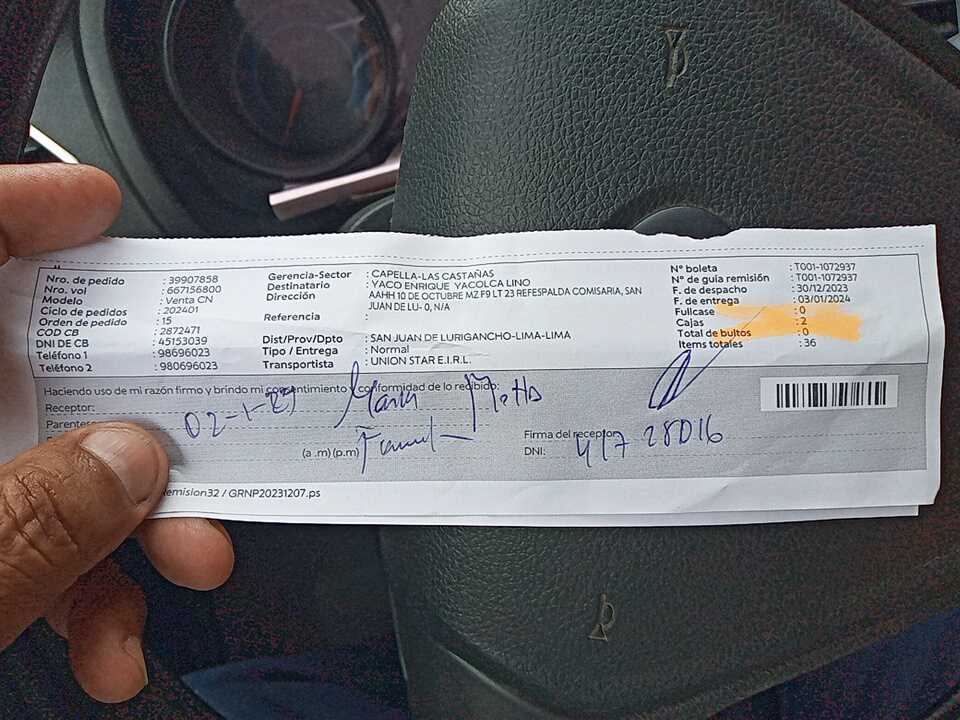 Nro. de pedido : 39907858
Nro. vol : 667156800
Modelo : Venta CN
Ciclo de pedidos : 202401
Orden de pedido : 15
COD CB : 2872471
DNI DE CB : 45153039
Teléfono 1 : 98696023
Teléfono 2 : 980696023
Gerencia-Sector : CAPELLA-LAS CASTAÑAS
Destinatario : YACO ENRIQUE YACOLCA LINO
Dirección : AAHH 10 DE OCTUBRE MZ F9 LT 23 REFESPALDA COMISARIA, SAN
JUAN DE LU- 0, N/A
Referencia :
Dist/Prov/Dpto : SAN JUAN DE LURIGANCHO-LIMA-LIMA
Tipo / Entrega : Normal
Transportista : UNION STAR E.I.R.L.
N° boleta : T001-1072937
N° de guía remisión : T001-1072937
F. de despacho : 30/12/2023
F. de entrega : 03/01/2024
Fullcase : 0
Cajas : 2
Total de bultos : 0
Items totales : 36
Haciendo uso de mi razón firmo y brindo mi consentimiento y conformidad de lo recibido:
Receptor:
02-1-24
(a .m) (p.m)
Firma del receptor
DNI: 41728016
emision32 / GRNP20231207.ps